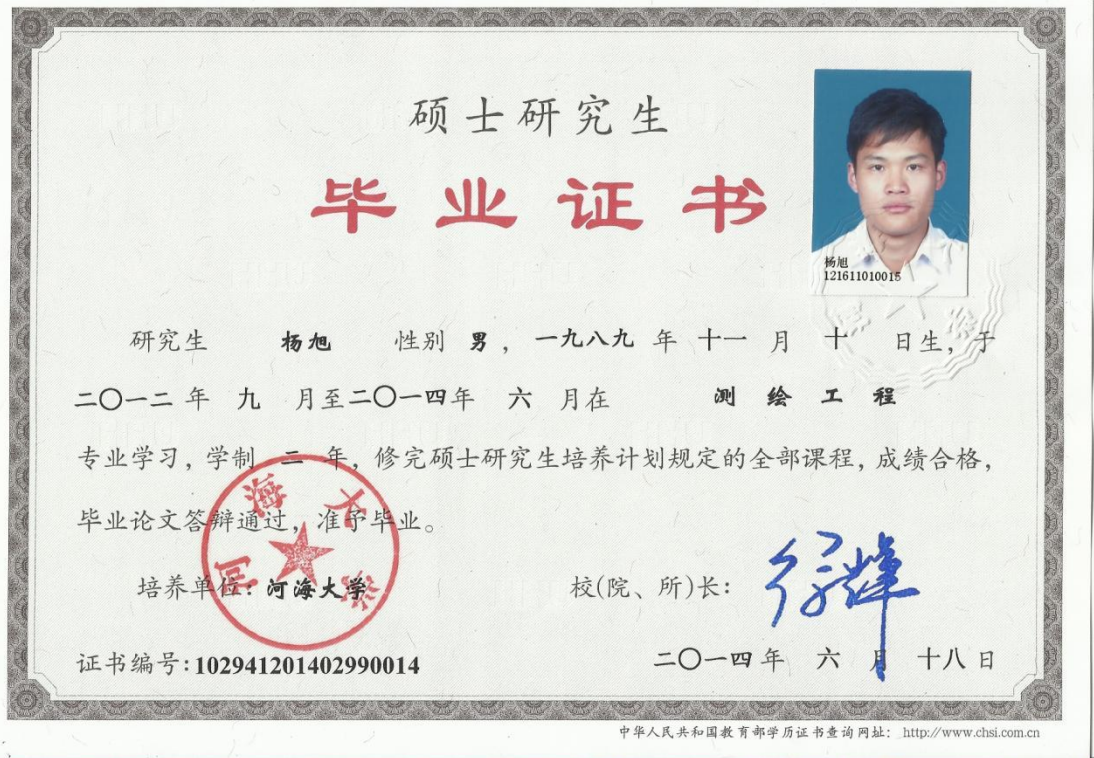 硕士研究生
毕业证书
杨旭
121611010015
研究生 杨旭 性别 男，一九八九 年 十一 月 十 日生，于
二〇一二 年 九 月至二〇一四年 六 月在 测绘工程
专业学习，学制 二 年，修完硕士研究生培养计划规定的全部课程，成绩合格，
毕业论文答辩通过，准予毕业。
河海大学
培养单位：河海大学 校(院、所)长：
证书编号：102941201402990014 二〇一四 年 六 月 十八 日
中华人民共和国教育部学历证书查询网址：http://www.chsi.com.cn